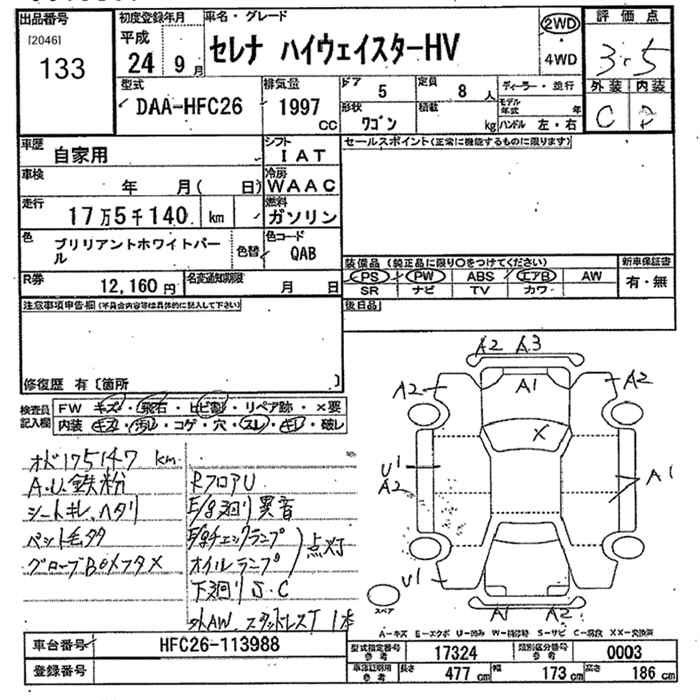 出品番号 初度登録年月 車名・グレード 2WD 評価点
[2046] 平成 セレナ ハイウェイスターHV 4WD 3.5
133 24 9月
型式 排気量 ドア 5 定員 8人 ディーラー・並行 外装 内装
DAA-HFC26 1997 CC 形状 ワゴン 積載 kg モデル年式 年 C D
ハンドル 左・右
車歴 自家用 シフト IAT セールスポイント(正常に機能するものに限ります)
車検 年 月( 日) 冷房 WAAC
走行 17万5千140 km 燃料 ガソリン
色 ブリリアントホワイトパール 色替 色コード QAB
装備品(純正品に限り○をつけてください) 新車保証書
R券 12,160円 名変通知期限 月 日 PS PW ABS エアB AW 有・無
SR ナビ TV カワ
注意事項申告欄(不具合内容等は具体的に記入して下さい) 後日品
修復歴 有〔箇所 〕
検査員記入欄 FW キズ・飛石・ヒビ割・リペア跡・×要
内装 キズ・汚レ・コゲ・穴・スレ・キレ・破レ
A2 A3
A2 A1 A2
X
U1
A2 A1
U1
A1 A2
スペア
オド175147 km
A.U.鉄粉 RフロアU
シートキレ、ヘタリ E/g廻リ異音
ペット毛多 E/gチェックランプ
オイルランプ 点灯
グローブBOXフタX 下廻リS・C
外AW、スタッドレスT 1本
A-キズ E-エクボ U-凹み W-補修跡 S-サビ C-腐食 XX-交換済
車台番号 HFC26-113988 型式指定番号 参考 17324 類別区分番号 参考 0003
登録番号 車庫証明用 参考 長さ 477cm 幅 173cm 高さ 186cm